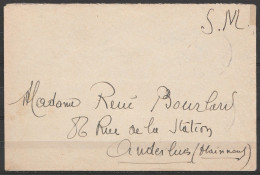 S.M
Madame René Bourlard
86 Rue de la Station
Anderlues (Hainaut)